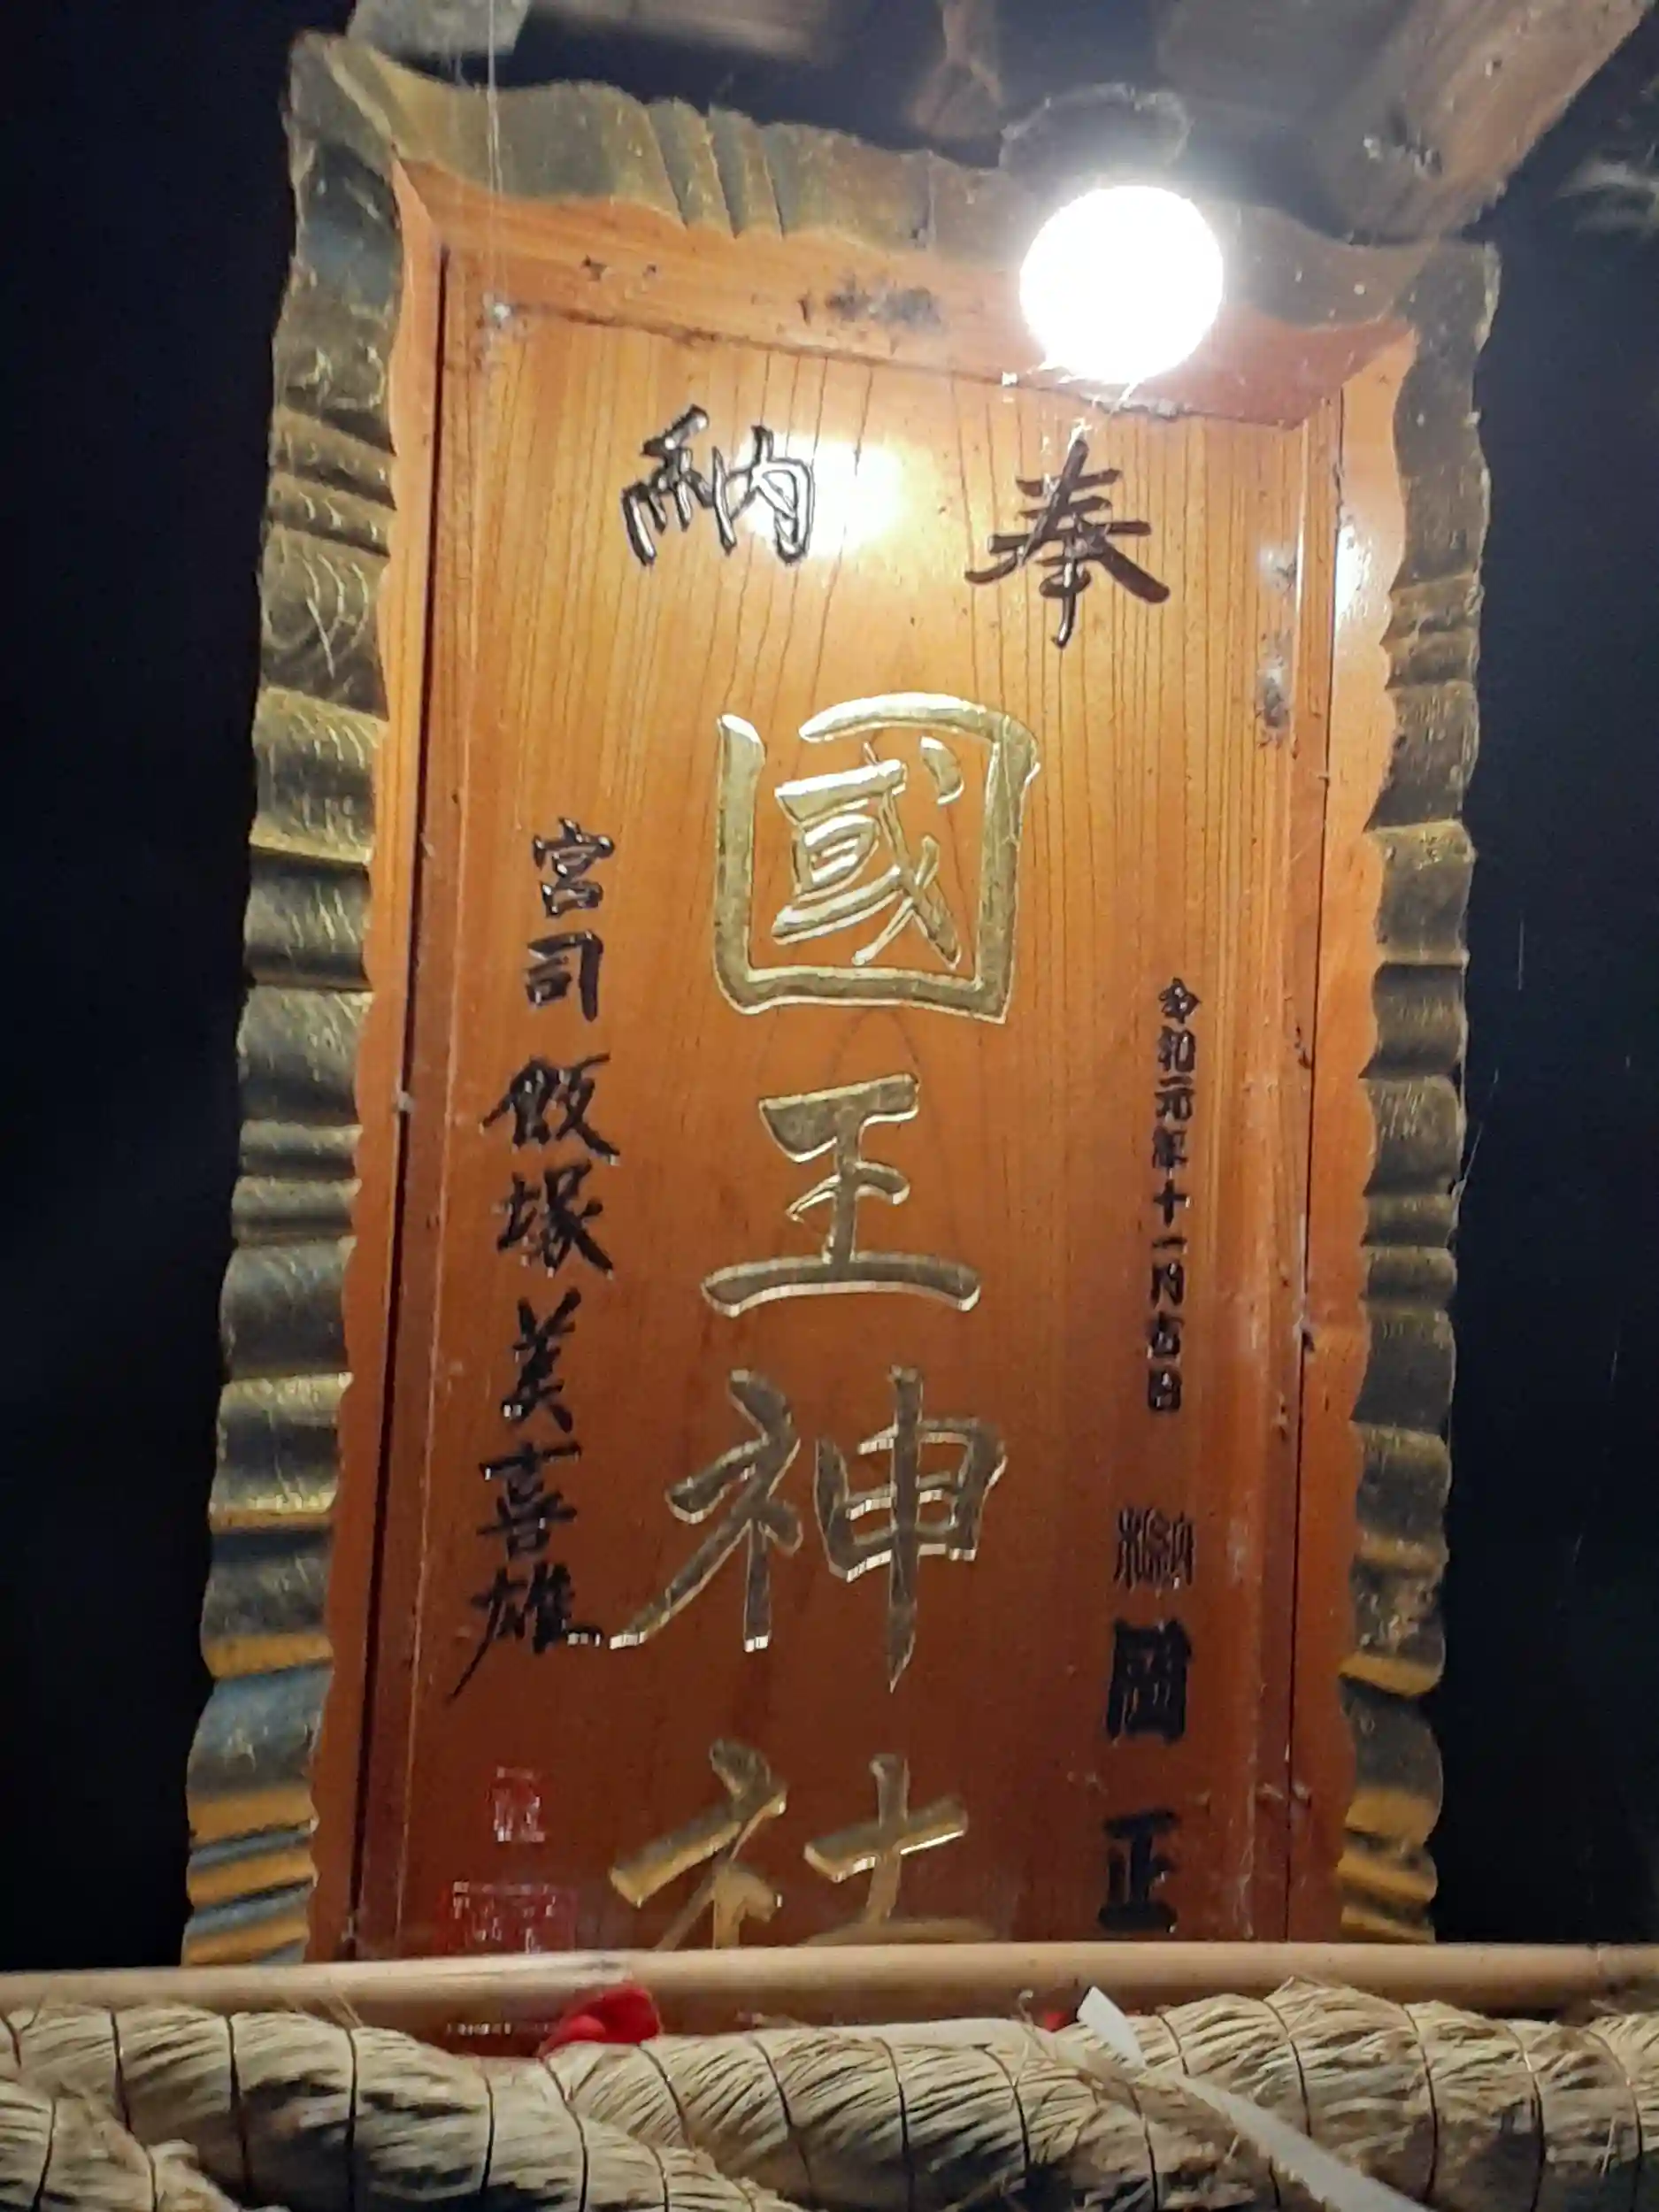 奉納
令和元年十一月吉日
岡正
國王神社
宮司 飯塚美喜雄